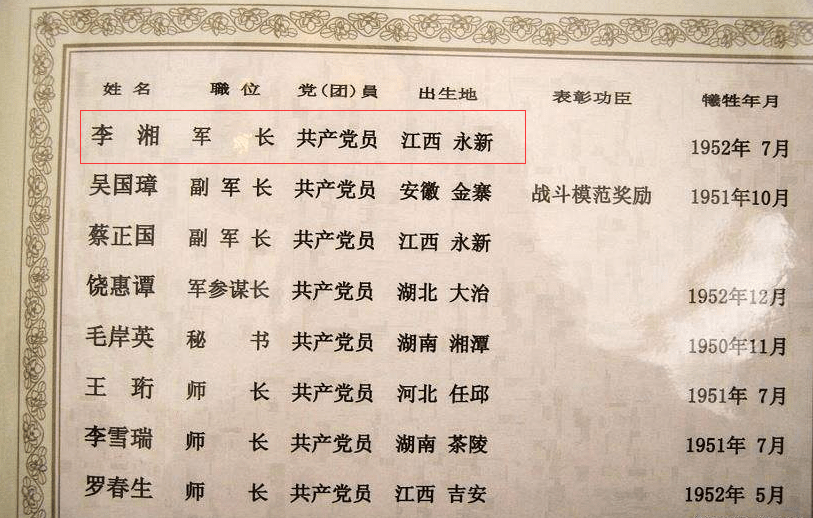 姓名 職位 党（团）員 出生地 表彰功臣 犧牲年月
李湘 军长 共产党员 江西 永新 1952年 7月
吴国璋 副军长 共产党员 安徽 金寨 战斗模范奖励 1951年10月
蔡正国 副军长 共产党员 江西 永新
饶惠谭 军参谋长 共产党员 湖北 大冶 1952年12月
毛岸英 秘书 共产党员 湖南 湘潭 1950年11月
王珩 师长 共产党员 河北 任邱 1951年 7月
李雪瑞 师长 共产党员 湖南 茶陵 1951年 7月
罗春生 师长 共产党员 江西 吉安 1952年 5月